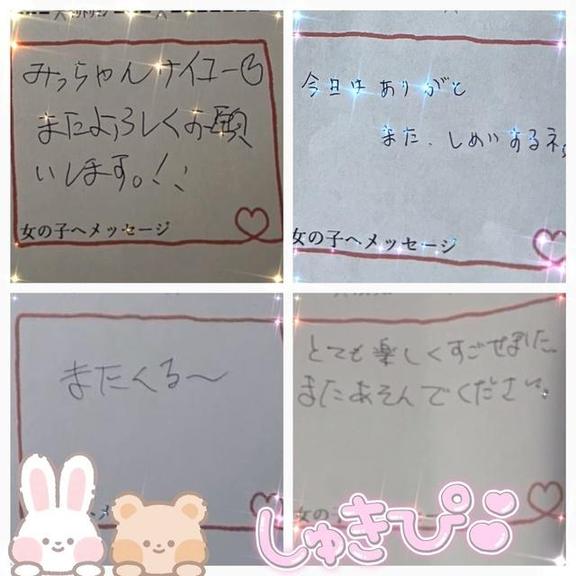 みっちゃんナイスー
またよろしくお願
いします。!!
女の子へメッセージ
今日はありがと
また、しめいするネ。
女の子へメッセージ
またくる〜
とても楽しくすごせました
またあそんでください。
しゅきぴ